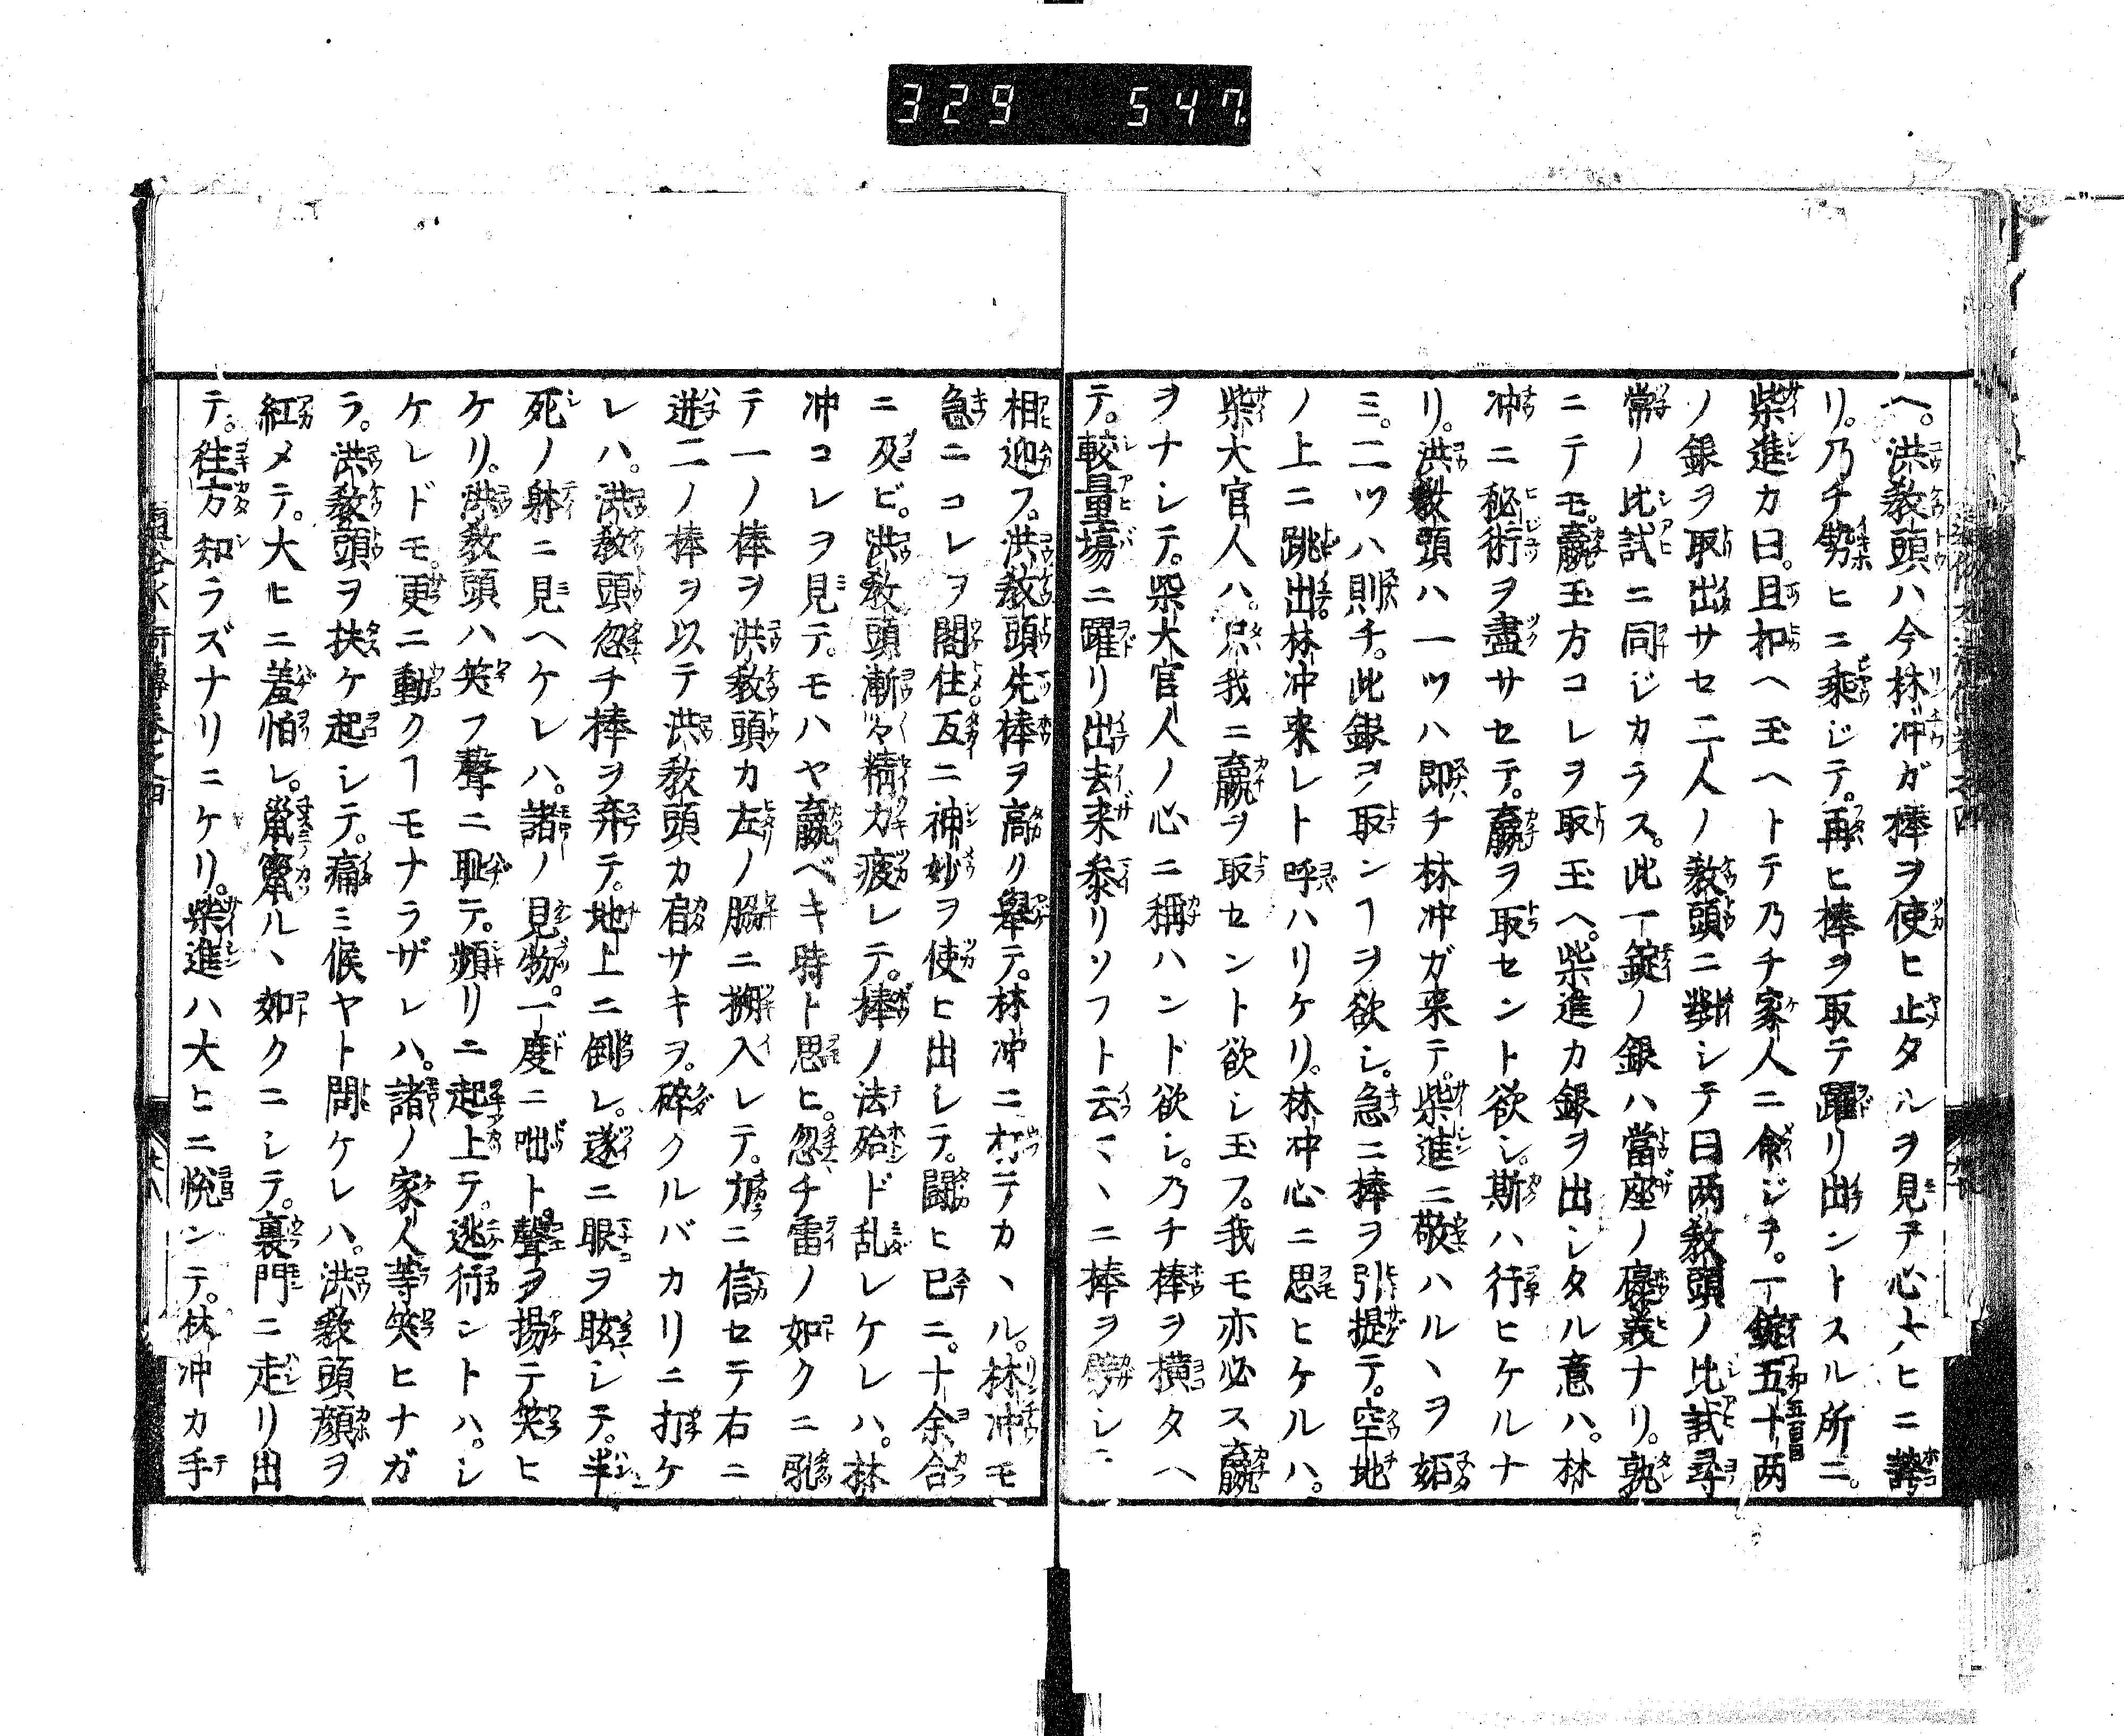 329 547
ヘ。洪教頭ハ今林冲ガ棒ヲ使ヒ止タルヲ見テ心大ヒニ誇
リ。乃チ勢ヒニ乘ジテ。再ヒ棒ヲ取テ躍リ出ントスル所ニ。
柴進カ曰。且扣ヘ玉ヘトテ乃チ家人ニ命ジテ。一錠五十两
ノ銀ヲ取出サセ二人ノ教頭ニ對シテ曰两教頭ノ比試尋
常ノ比試ニ同ジカラス。此一錠ノ銀ハ當座ノ褒義ナリ。孰
ニテモ。贏玉方コレヲ取玉ヘ。柴進カ銀ヲ出シタル意ハ。林
冲ニ秘術ヲ盡サセテ。贏ヲ取セント欲シ。斯ハ行ヒケルナ
リ。洪教頭ハ一ツハ即チ林冲ガ来テ。柴進ニ敬ハルヽヲ妬
ミ。二ツハ則チ。此銀ヲ取ンヿヲ欲シ。急ニ棒ヲ引提テ。空地
ノ上ニ跳出。林冲来レト呼ハリケリ。林冲心ニ思ヒケルハ。
柴大官人ハ。只我ニ贏ヲ取セント欲シ玉フ。我モ亦必ス贏
ヲナシテ。柴大官人ノ心ニ稱ハンド欲シ。乃チ棒ヲ横タヘ
テ。較量塲ニ躍リ出去来参リソフト云ヽニ棒ヲシニ
相迎フ。洪教頭先棒ヲ高ク舉テ。林冲ニ打テカヽル。林冲モ
急ニコレヲ閣住互ニ神妙ヲ使ヒ出シテ。闘ヒ已ニ。十余合
ニ及ビ。洪教頭漸々精力疲レテ。棒ノ法殆ド乱レケレハ。林
冲コレヲ見テ。モハヤ贏ベキ時ト思ヒ。忽チ雷ノ如クニ吼
テ一ノ棒ヲ洪教頭カ左ノ脇ニ搠入レテ。力ニ信セテ右ニ
迸二ノ棒ヲ以テ洪教頭カ肩サキヲ。碎クルバカリニ打ケ
レハ。洪教頭忽チ棒ヲ弃テ。地上ニ倒レ。遂ニ眼ヲ眩シテ。半
死ノ躰ニ見ヘケレハ。諸ノ見物。一度ニ咄ト。聲ヲ揚テ笑ヒ
ケリ。洪教頭ハ笑フ聲ニ耻テ。頻リニ起上テ。逃行ントハ。シ
ケレドモ。更ニ動クヿモナラザレハ。諸ノ家人等笑ヒナガ
ラ。洪教頭ヲ扶ケ起シテ。痛ミ候ヤト問ケレハ。洪教頭顔ヲ
紅メテ。大ヒニ羞怕レ。鼠竄ルヽ如クニシテ。裏門ニ走リ出
テ。往方知ラズナリニケリ。柴進ハ大ヒニ悦ンテ。林冲カ手